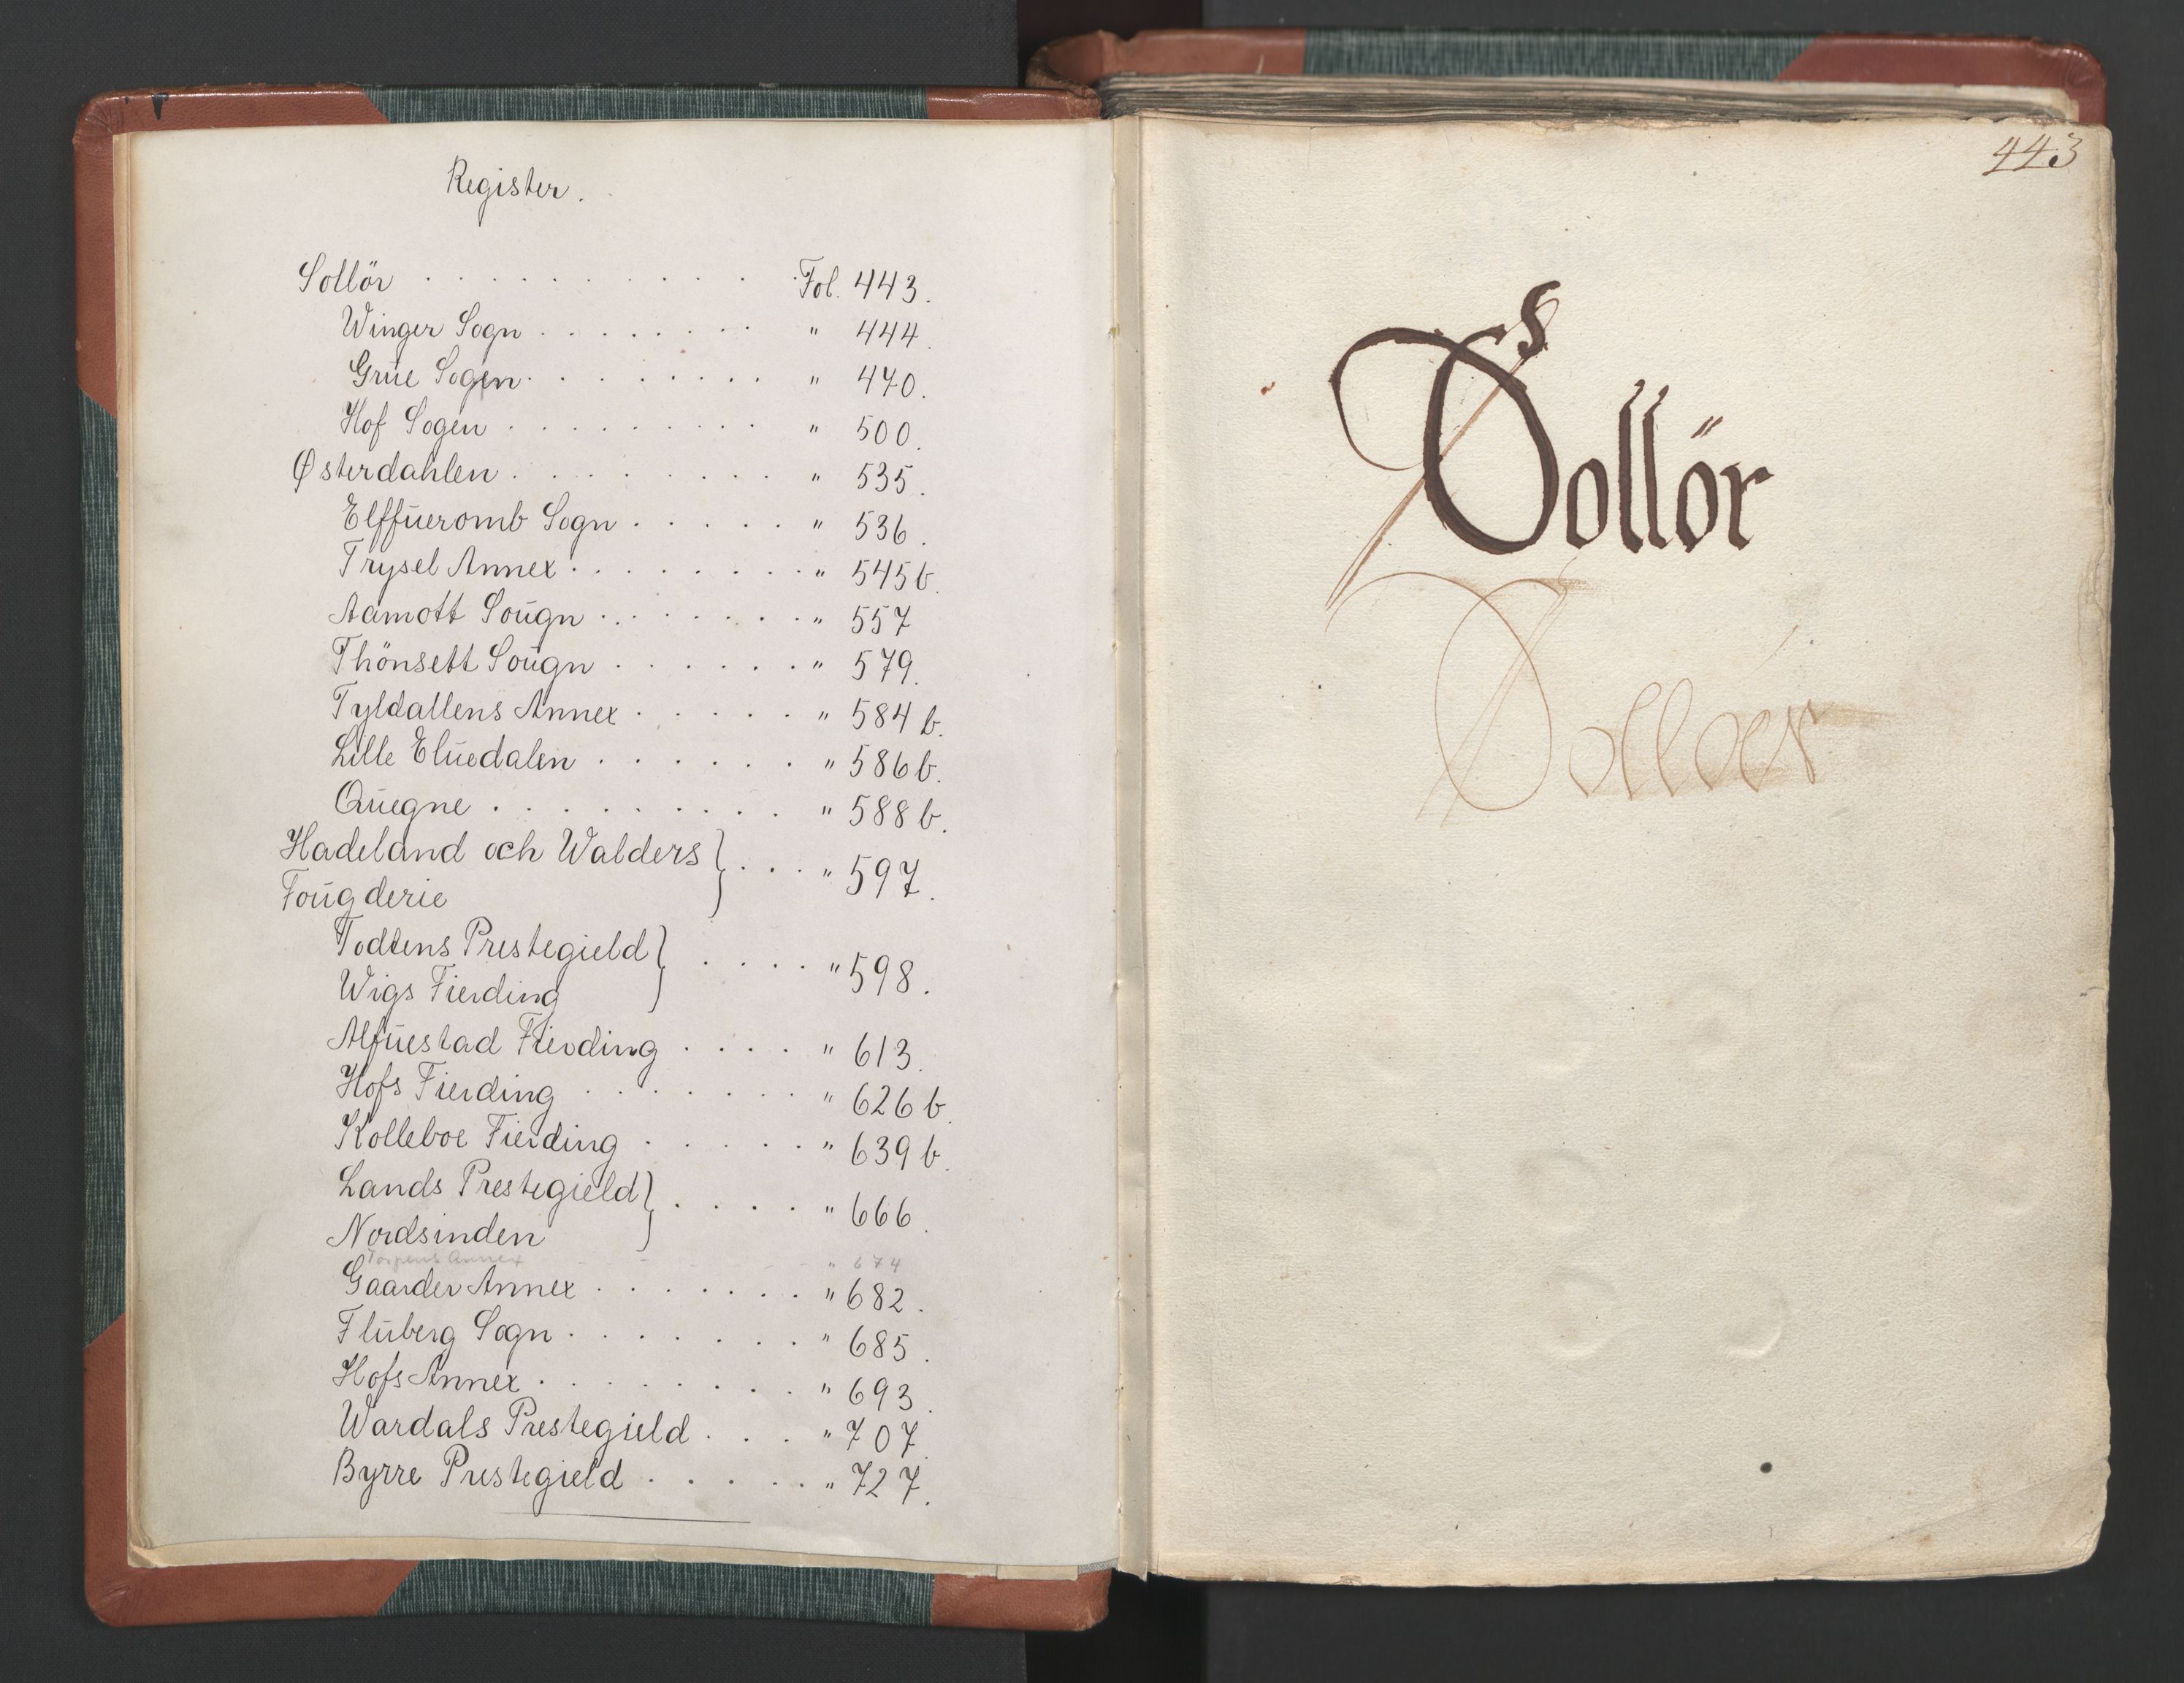 Register.
Sollör . . . . . . . . . . Fol. 443.
Winger Sogn . . . . . . . . " 444.
Grüe Sogen . . . . . . . . " 470.
Hof Sogen . . . . . . . . . " 500.
Østerdahlen . . . . . . . . " 535.
Elffüeromb Sogn . . . . . " 536.
Trysel Annex . . . . . . . " 545 b.
Aamott Soügn . . . . . . . " 557
Thönsett Soügn . . . . . . " 579.
Tyldallens Annex . . . . . " 584 b.
Lille Elüedalen . . . . . . " 586 b.
Qüegne . . . . . . . . . " 588 b.
Hadeland och Walders } . . . " 597.
Foügderie
Todtens Prestegield } . . . . " 598.
Wigs Fierding
Alfüestad Fierding . . . . " 613.
Hofs Fierding . . . . . . . " 626 b.
Kolleboe Fierding . . . . . " 639 b.
Lands Prestegield } . . . . " 666.
Nordsinden
Torpens Annex - - - - " 674
Gaarder Annex . . . . . . . " 682.
Flüberg Sogn . . . . . . . " 685.
Hofs Annex . . . . . . . . " 693.
Wardals Prestegield . . . " 707.
Byrre Prestegield . . . . . " 727.
443
S
Sollör
Solloer